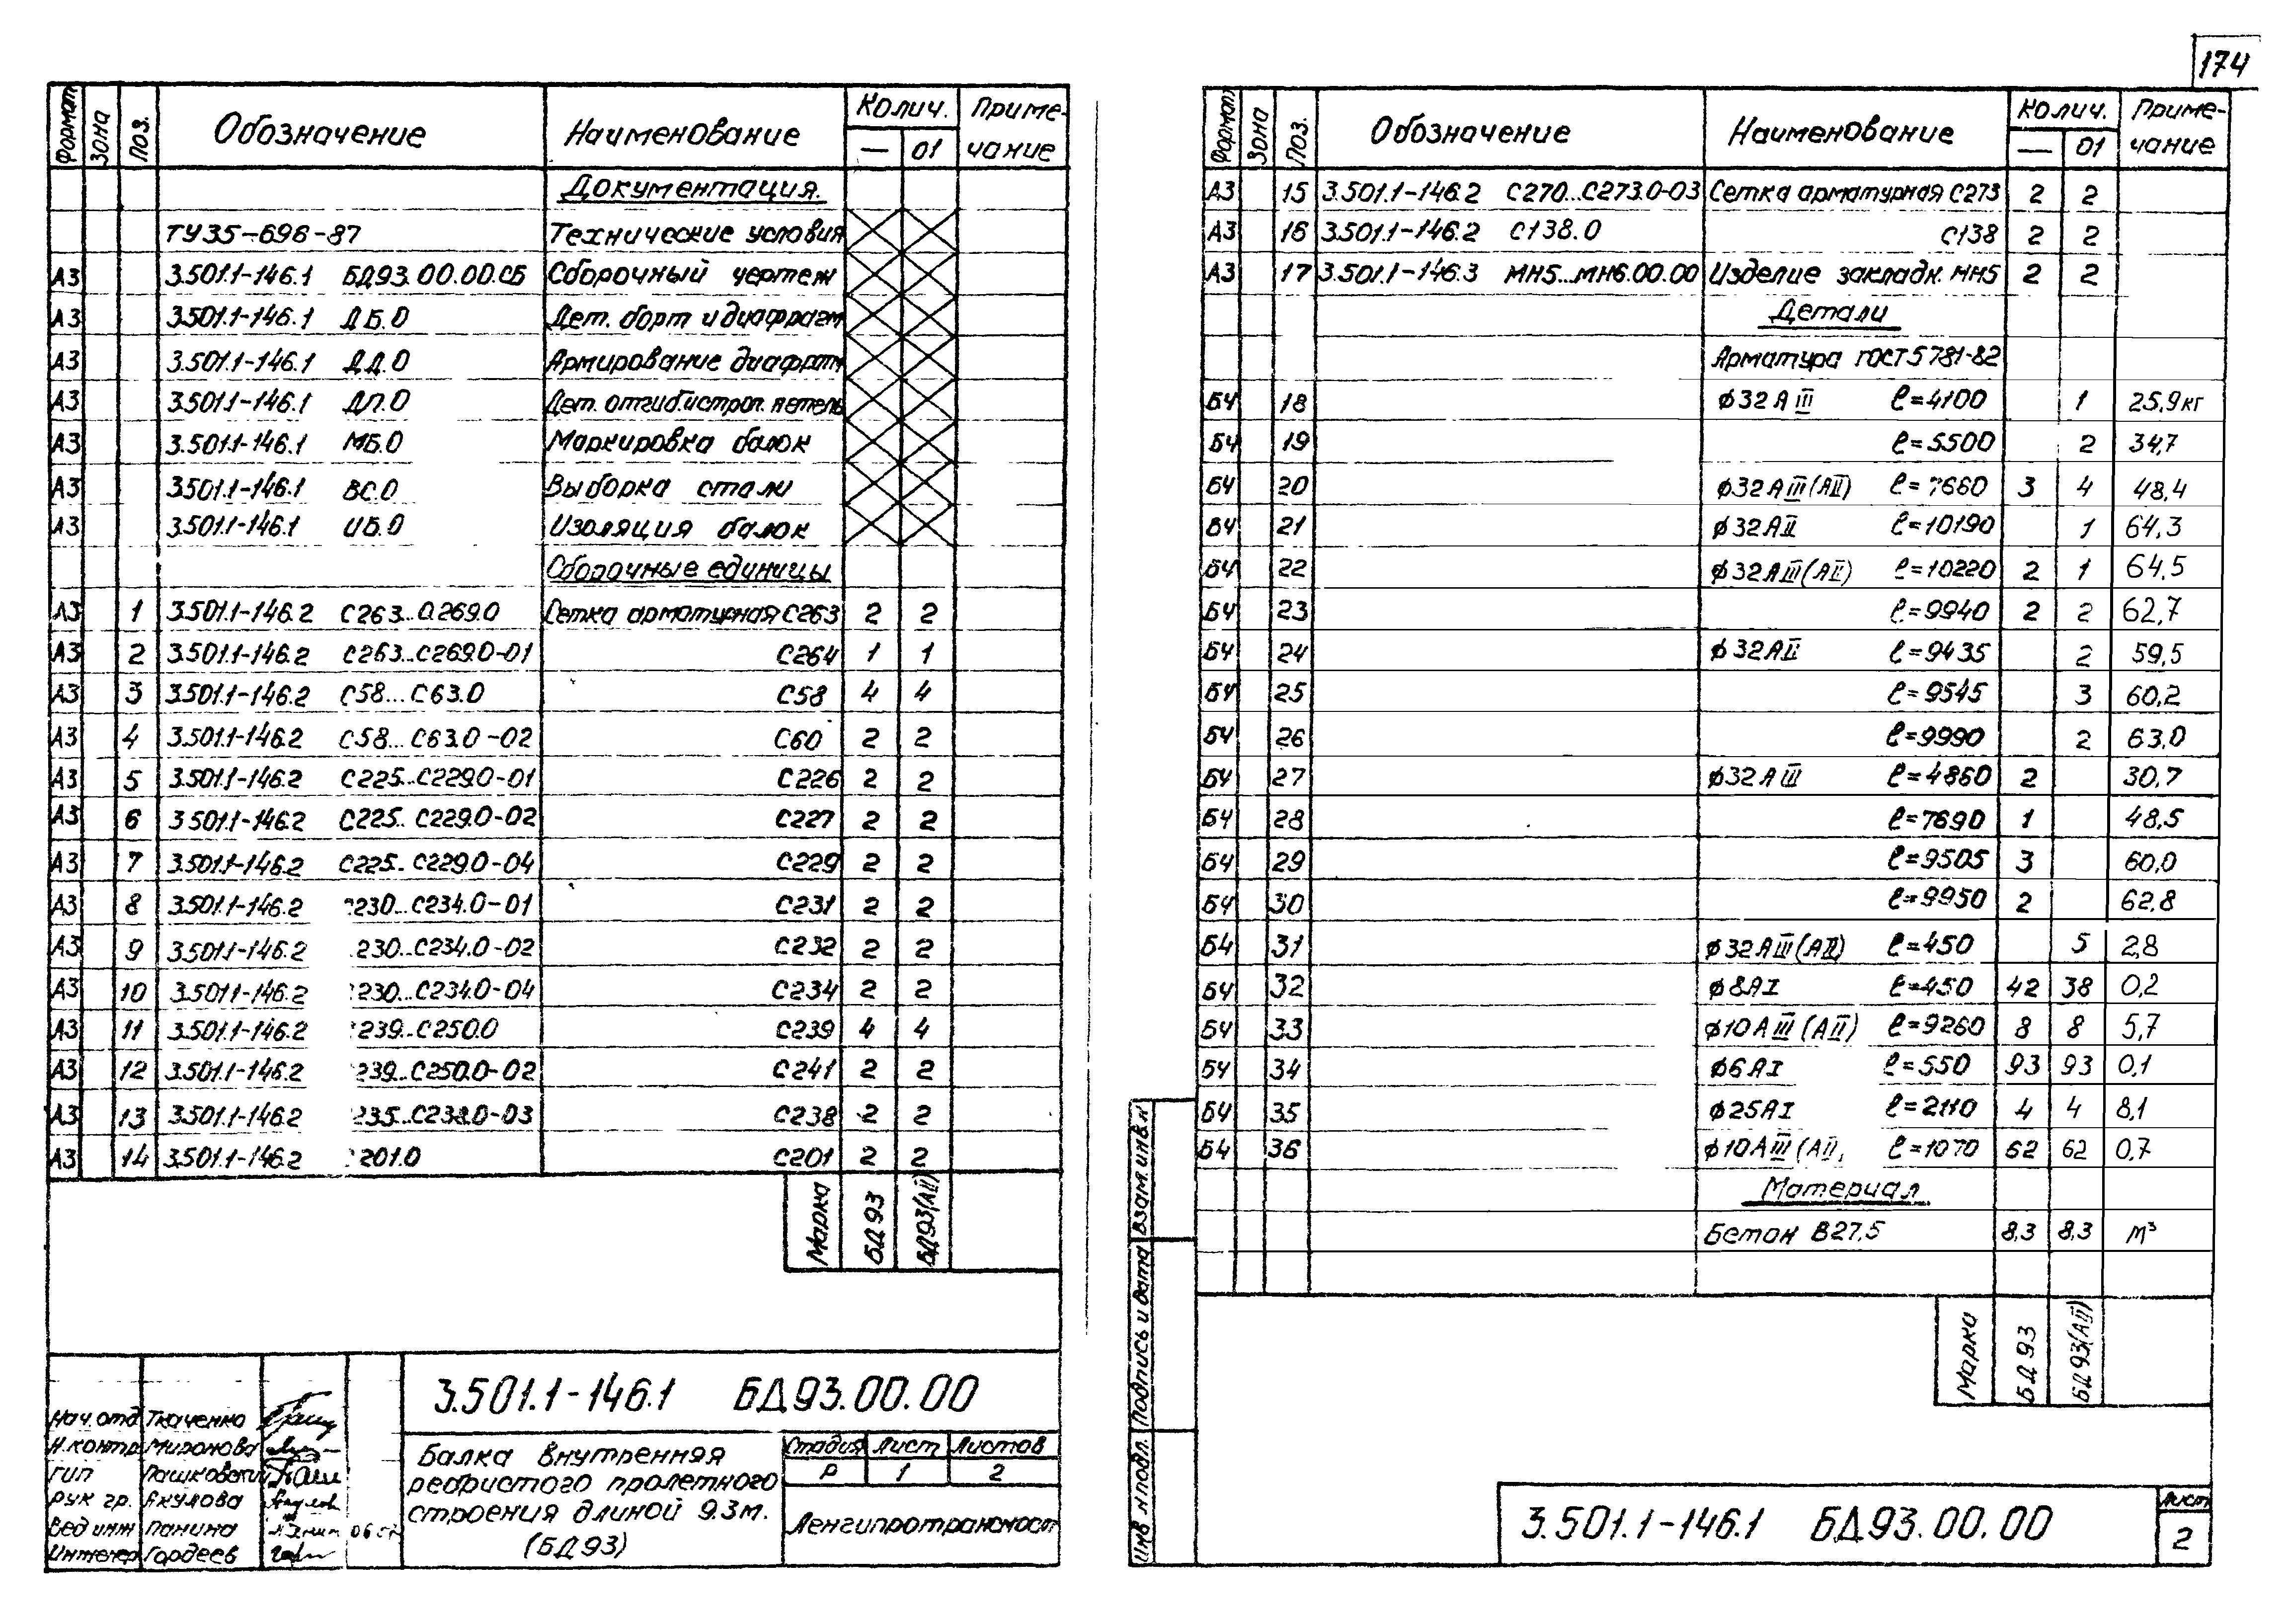 174
Формат Зона Поз. Обозначение Наименование Колич. Приме-чание
— 01
Документация.
ТУ35-696-87 Технические условия
А3 3.501.1-146.1 БД93.00.00.СБ Сборочный чертеж
А3 3.501.1-146.1 ДБ.0 Дет. борт и диафрагм
А3 3.501.1-146.1 ДД.0 Армирование диафрагм
А3 3.501.1-146.1 ДП.0 Дет. отгиб. и строп. петель
А3 3.501.1-146.1 МБ.0 Маркировка балок
А3 3.501.1-146.1 ВС.0 Выборка стали
А3 3.501.1-146.1 ИБ.0 Изоляция балок
Сборочные единицы
А3 1 3.501.1-146.2 С263...С269.0 Сетка арматурная С263 2 2
А3 2 3.501.1-146.2 С263...С269.0-01 С264 1 1
А3 3 3.501.1-146.2 С58...С63.0 С58 4 4
А3 4 3.501.1-146.2 С58...С63.0-02 С60 2 2
А3 5 3.501.1-146.2 С225...С229.0-01 С226 2 2
А3 6 3.501.1-146.2 С225..С229.0-02 С227 2 2
А3 7 3.501.1-146.2 С225..С229.0-04 С229 2 2
А3 8 3.501.1-146.2 С230...С234.0-01 С231 2 2
А3 9 3.501.1-146.2 230...С234.0-02 С232 2 2
А3 10 3.501.1-146.2 С230...С234.0-04 С234 2 2
А3 11 3.501.1-146.2 С239...С250.0 С239 4 4
А3 12 3.501.1-146.2 С239...С250.0-02 С241 2 2
А3 13 3.501.1-146.2 С235...С238.0-03 С238 2 2
А3 14 3.501.1-146.2 С201.0 С201 2 2
Марка БД93 БД93(АII)
3.501.1-146.1 БД93.00.00
Нач.отд Ткаченко
Н.контр Миронова
ГИП Пашковский
Рук гр. Акулова
Вед инж Панина
Инженер Гордеев
Балка внутренняя
ребристого пролетного
строения длиной 9.3м.
(БД93)
Стадия Лист Листов
Р 1 2
Ленгипротрансмост
Формат Зона Поз. Обозначение Наименование Колич. Приме-чание
— 01
А3 15 3.501.1-146.2 С270...С273.0-03 Сетка арматурная С273 2 2
А3 16 3.501.1-146.2 С138.0 С138 2 2
А3 17 3.501.1-146.3 МН5...МН6.00.00 Изделие закладн. МН5 2 2
Детали
Арматура ГОСТ 5781-82
БЧ 18 ϕ32АIII ℓ=4100 1 25,9кг
БЧ 19 ℓ=5500 2 34,7
БЧ 20 ϕ32АIII(АII) ℓ=7660 3 4 48,4
БЧ 21 ϕ32АII ℓ=10190 1 64,3
БЧ 22 ϕ32АIII(АII) ℓ=10220 2 1 64,5
БЧ 23 ℓ=9940 2 2 62,7
БЧ 24 ϕ32АII ℓ=9435 2 59,5
БЧ 25 ℓ=9545 3 60,2
БЧ 26 ℓ=9990 2 63,0
БЧ 27 ϕ32АIII ℓ=4860 2 30,7
БЧ 28 ℓ=7690 1 48,5
БЧ 29 ℓ=9505 3 60,0
БЧ 30 ℓ=9950 2 62,8
БЧ 31 ϕ32АIII(АII) ℓ=450 5 2,8
БЧ 32 ϕ8АI ℓ=450 42 38 0,2
БЧ 33 ϕ10АIII(АII) ℓ=9260 8 8 5,7
БЧ 34 ϕ6АI ℓ=550 93 93 0,1
БЧ 35 ϕ25АI ℓ=2110 4 4 8,1
БЧ 36 ϕ10АIII(АII) ℓ=1070 62 62 0,7
Материал
Бетон В27,5 8,3 8,3 м³
Марка БД93 БД93(АII)
Инв. н подл. Подпись и дата Взам. инв. н
3.501.1-146.1 БД93.00.00
Лист
2